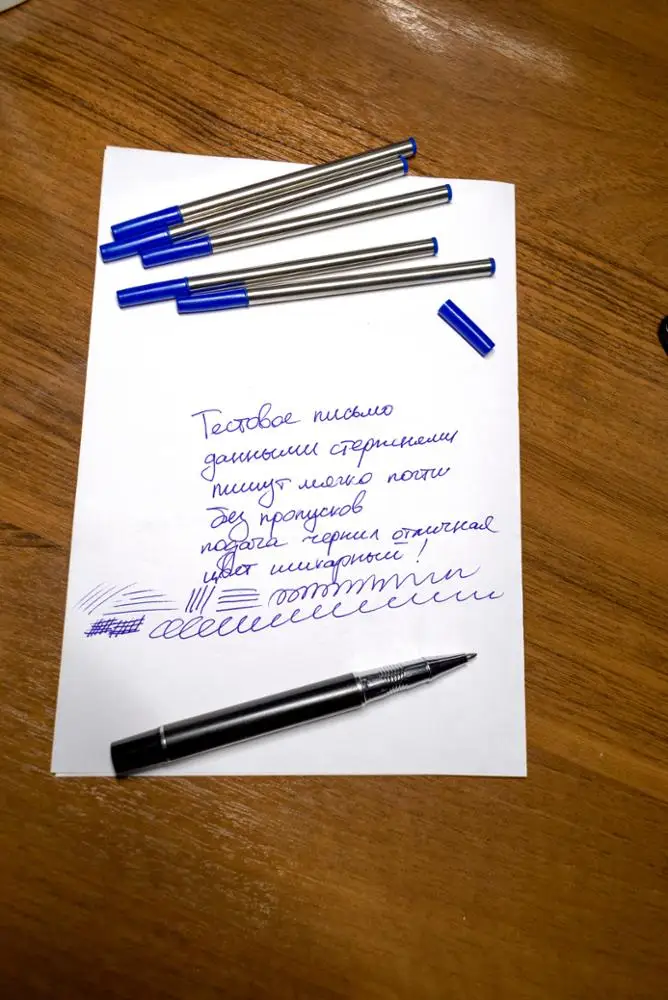 Тестовое письмо
данными стержнями
пишут мягко почти
без пропусков
подача чернил отличная
цвет шикарный!